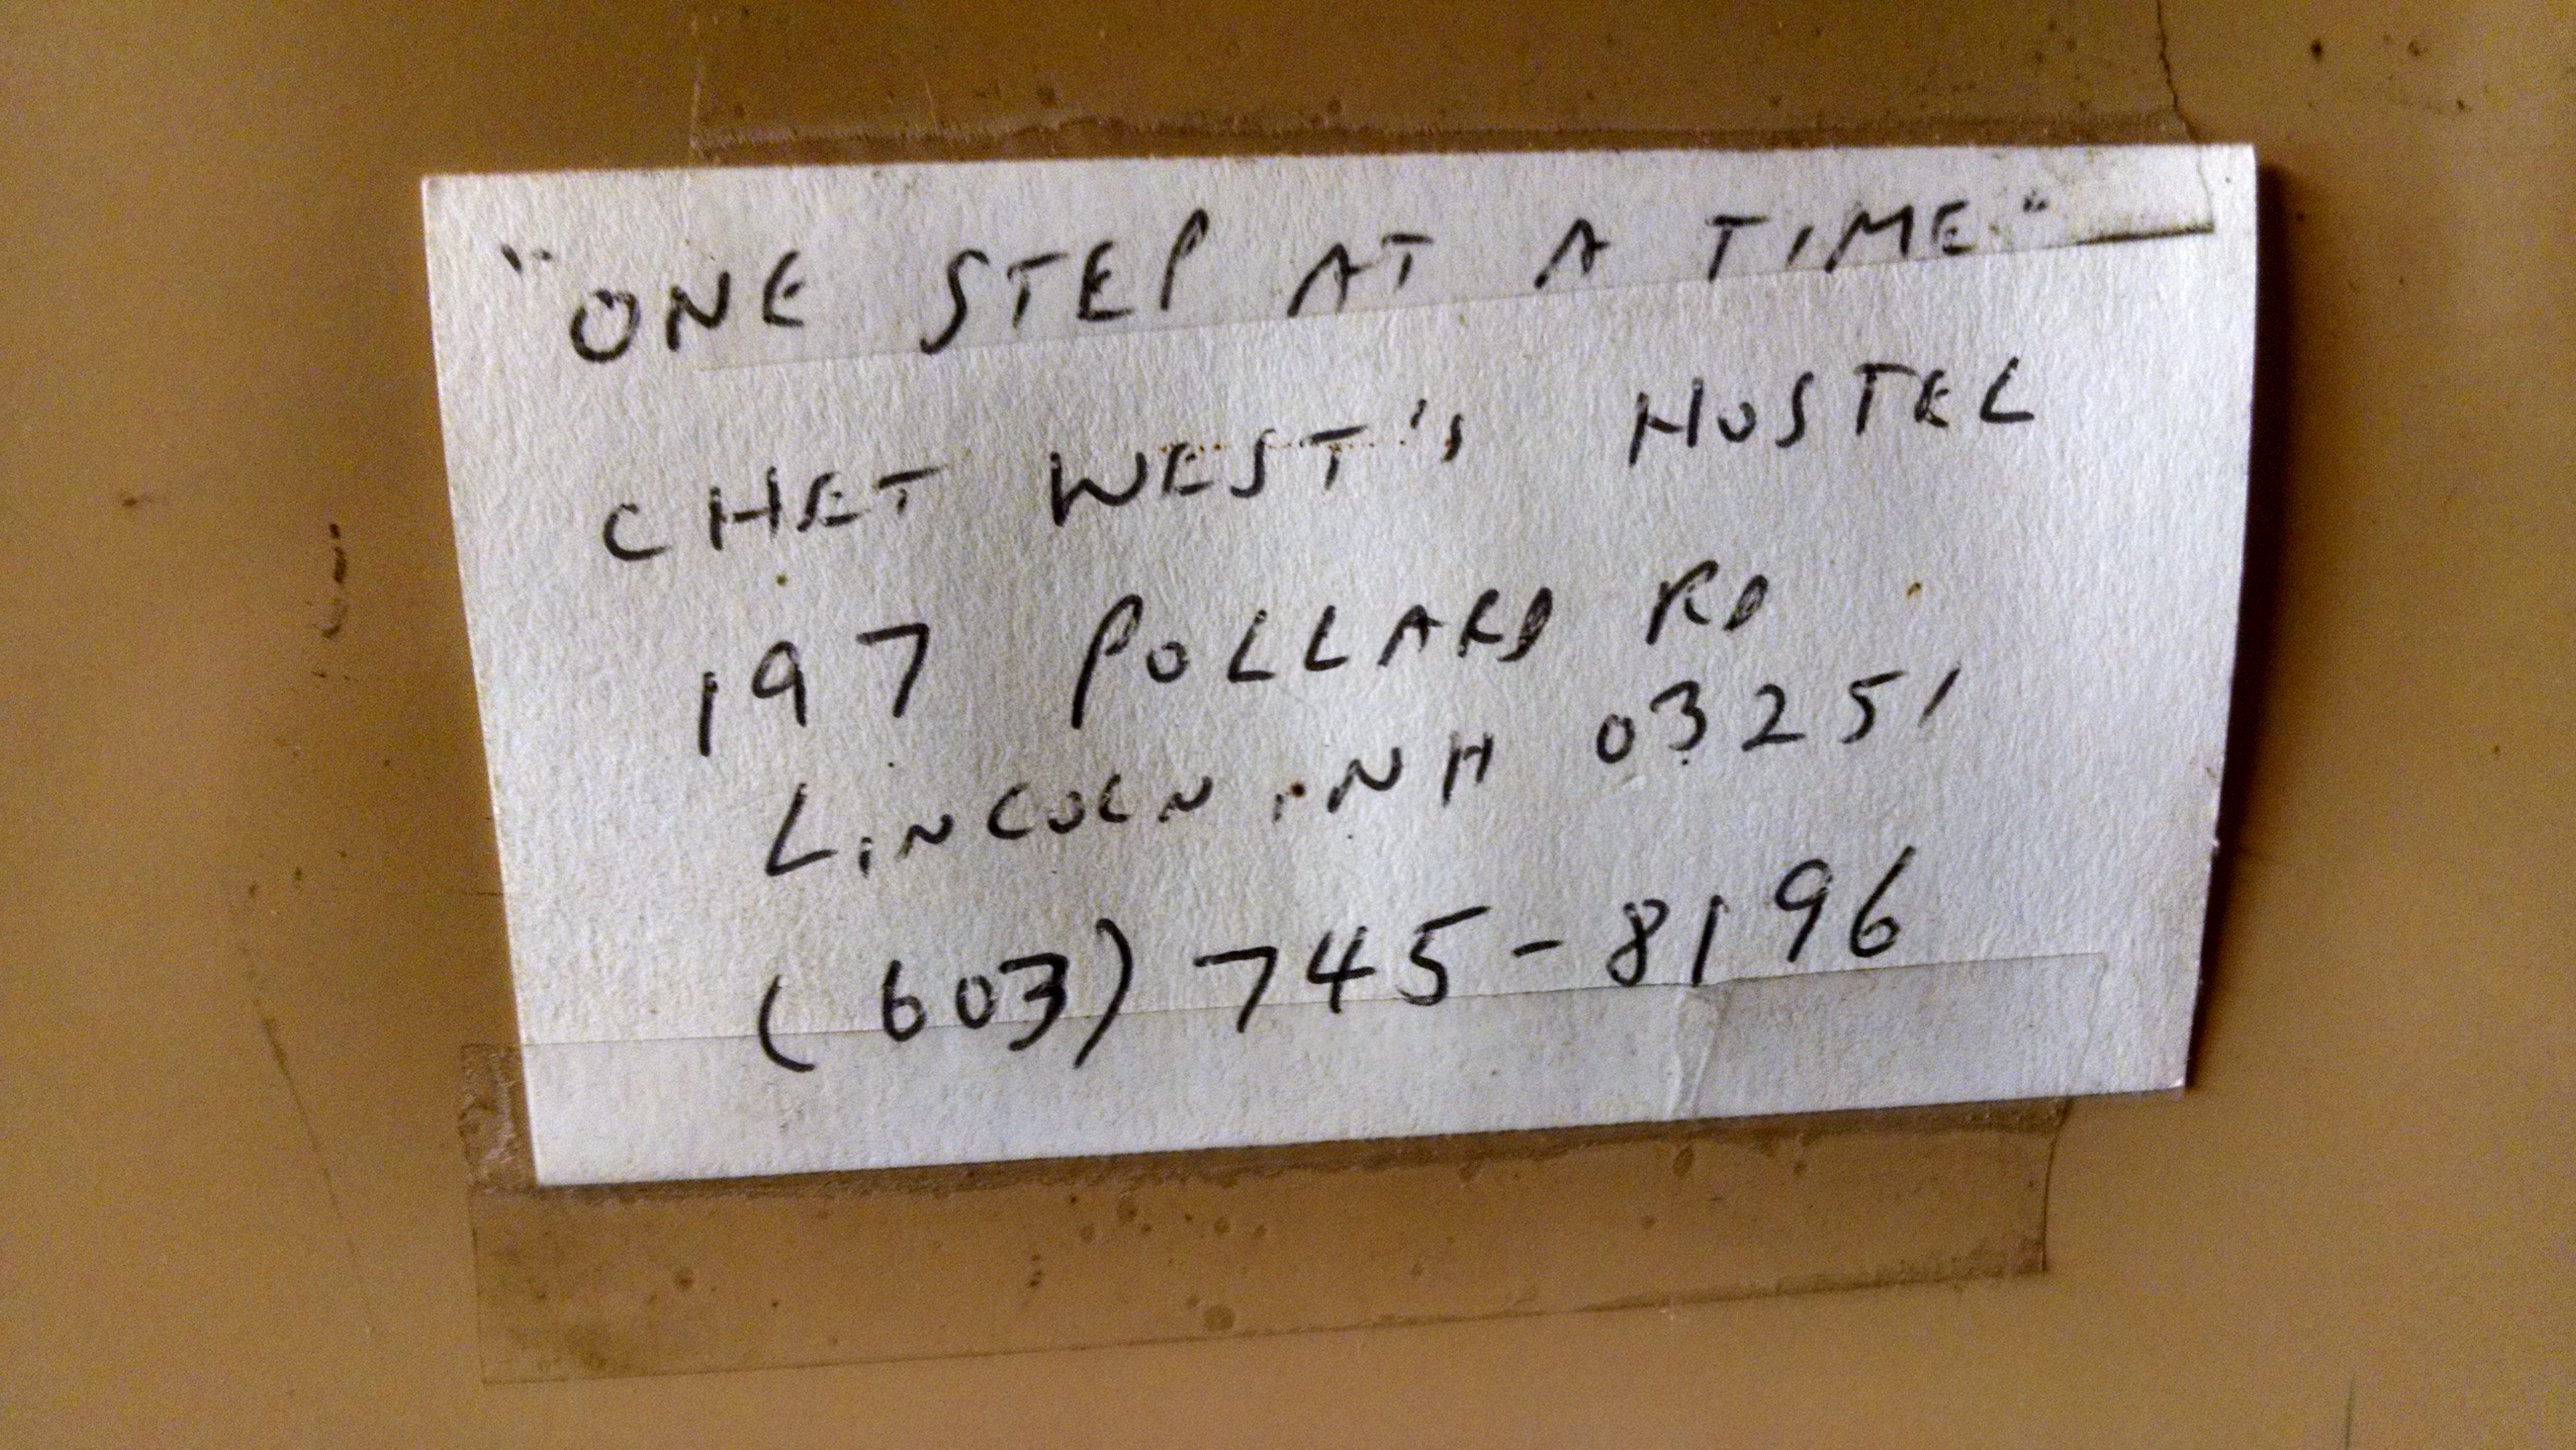 "ONE STEP AT A TIME"
CHET WEST'S HOSTEL
197 POLLARD RD
LINCOLN, NH 03251
(603) 745-8196